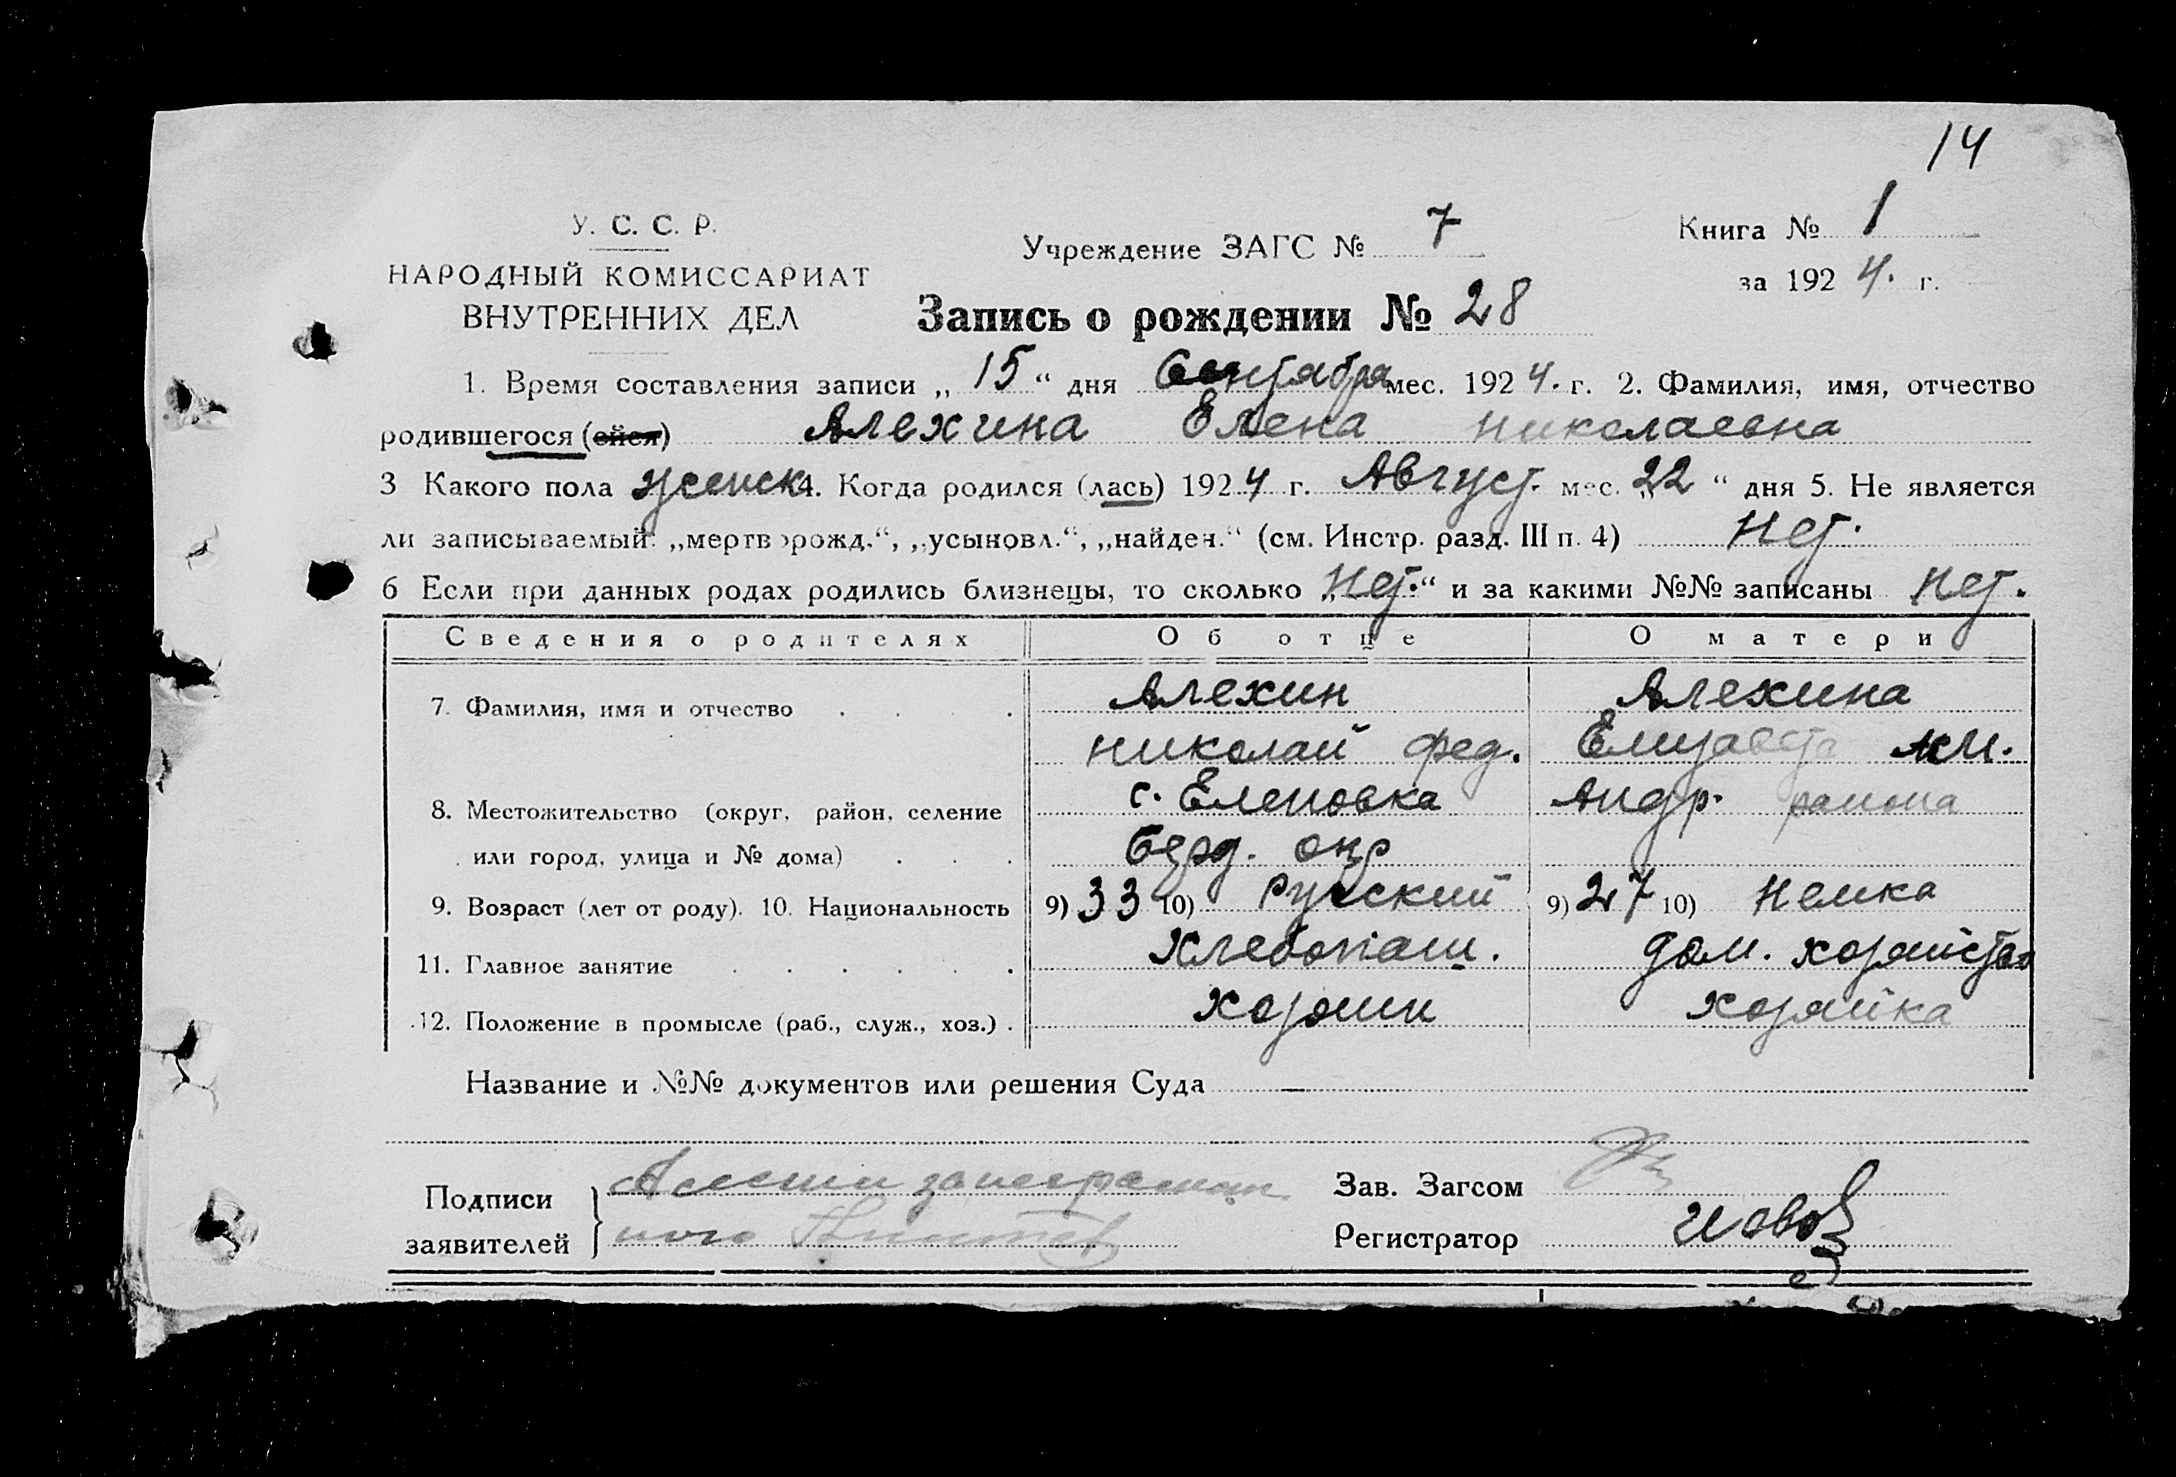 14
У. С. С. Р.
НАРОДНЫЙ КОМИССАРИАТ
ВНУТРЕННИХ ДЕЛ
Учреждение ЗАГС № 7
Книга № 1
за 1924. г.
Запись о рождении № 28
1. Время составления записи „ 15 “ дня Сентября мес. 1924. г. 2. Фамилия, имя, отчество
родившегося (ейся) Алехина Елена николаевна
3 Какого пола женск 4. Когда родился (лась) 1924 г. Август. мес. „ 22 “ дня 5. Не является
ли записываемый: „мерtворожд.“, „усыновл.“, „найден.“ (см. Инстр. разд. III п. 4) Нет.
6 Если при данных родах родились близнецы, то сколько „Нет.“ и за какими №№ записаны Нет.
Сведения о родителях Об отце О матери
7. Фамилия, имя и отчество . . . Алехин Алехина
николай фед. Елизавета
8. Местожительство (округ, район, селение с. Еленовка Андр. района
или город, улица и № дома) . . . Берд. окр
9. Возраст (лет от роду). 10. Национальность 9) 33 10) Русский 9) 27 10) Немка
11. Главное занятие . . . . . . Хлебопаш. дом. хозяйство
12. Положение в промысле (раб., служ., хоз.) . хозяин хозяйка
Название и №№ документов или решения Суда —
Подписи
заявителей
Зав. Загсом
Регистратор